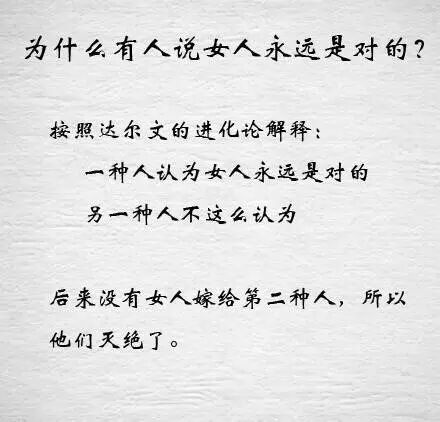 为什么有人说女人永远是对的?
按照达尔文的进化论解释:
一种人认为女人永远是对的
另一种人不这么认为
后来没有女人嫁给第二种人，所以
他们灭绝了。